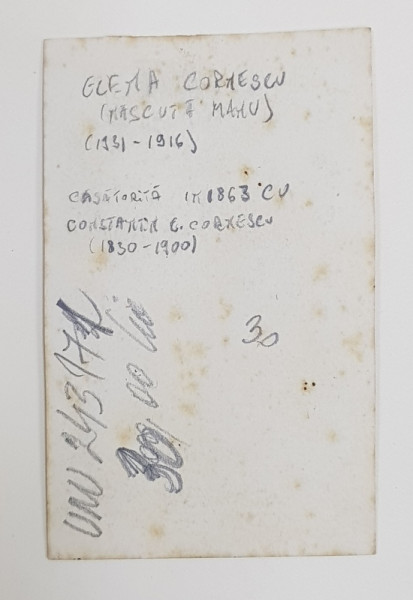 ELENA CORNESCU
(NĂSCUTĂ MANU)
(1931-1916)
CĂSĂTORITĂ IN 1863 CU
CONSTANTIN C. CORNESCU
(1830-1900)
30